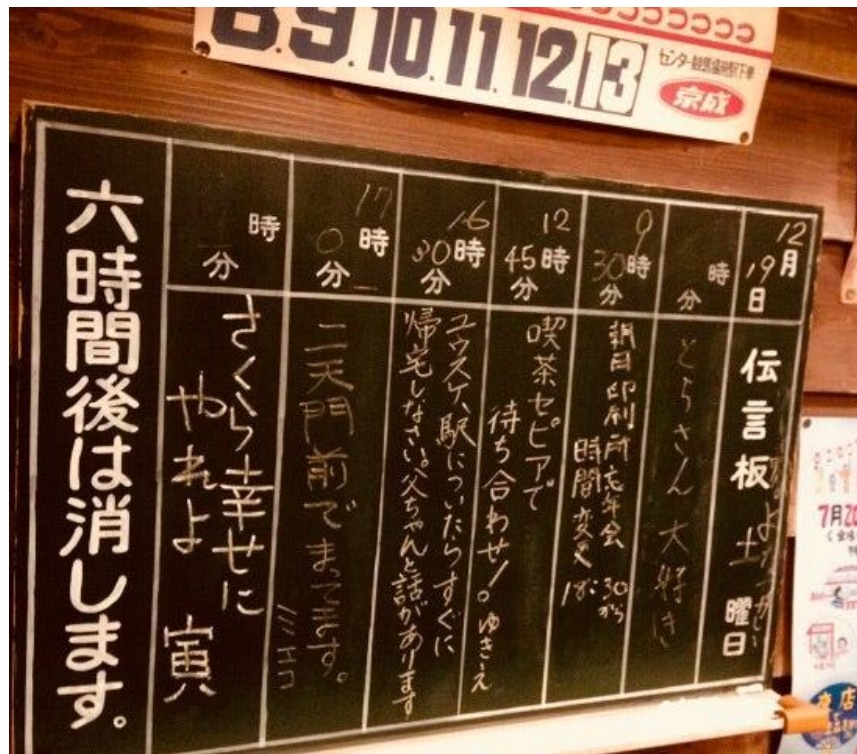 8.9.10.11.12.13
京成
12月
19日
伝言板
土曜日
時
分
とらさん 大好き
9時
30分
朝日印刷所忘年会
時間変更 18:30から
12時
45分
喫茶セピアで
待ち合わせ!。ゆきえ
16時
30分
ユウスケ、駅についたらすぐに
帰宅しなさい。父ちゃんと話があります
17時
0分
二天門前でまってます。
ミエコ
時
分
さくら幸せに
やれよ 寅
六時間後は消します。
7月20